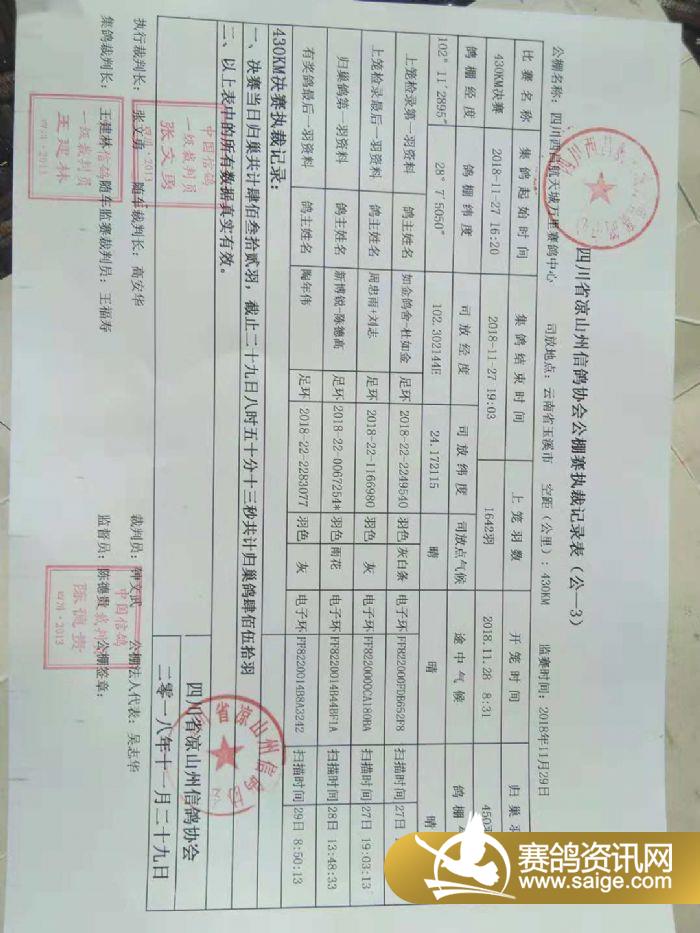 四川省凉山州信鸽协会公棚赛执裁记录表（公—3）
公棚名称：四川西昌航天城万里赛鸽中心 司放地点：云南省玉溪市 空距（公里）：430KM 监赛时间：2018年11月29日
比赛名称 集鸽起始时间 集鸽结束时间 上笼羽数 开笼时间 归巢
430KM决赛 2018-11-27 16:20 2018-11-27 19:03 1642羽 2018.11.28 8:31 450
鸽棚经度 鸽棚纬度 司放经度 司放纬度 司放点气候 途中气候 鸽棚
102°11′2895″ 28°7′5050″ 102.302144E 24.172115 晴 晴 晴
上笼检录第一羽资料 鸽主姓名 如金鸽舍-杜如金 足环 2018-22-2249540 羽色 灰白条 电子环 FF822000FDB652F8 扫描时间 27日
上笼检录最后一羽资料 鸽主姓名 周忠雨+刘志 足环 2018-22-1166980 羽色 灰 电子环 FF822000CA180BA 扫描时间 27日 19:03:13
归巢鸽第一羽资料 鸽主姓名 新博锐-陈德高 足环 2018-22-0067254* 羽色 雨花 电子环 FF8220014B44BF1A 扫描时间 28日 13:48:33
有奖鸽最后一羽资料 鸽主姓名 陶年伟 足环 2018-22-2283077 羽色 灰 电子环 FF8220014B8A3242 扫描时间 29日 8:50:13
430KM决赛执裁记录：
一、决赛当日归巢共计肆佰叁拾贰羽，截止二十九日八时五十分十三秒共计归巢鸽肆佰伍拾羽
二、以上表中的所有数据真实有效。
四川省凉山州信鸽协会
二零一八年十一月二十九日
执行裁判长：张文勇 随车裁判长：高安华 裁判员：钟文武 公棚法人代表：吴志华
集鸽裁判长：王建林 随车监赛裁判员：王福寿 监督员：陈德贵 公棚签章：
中国信鸽
一级裁判员
张文勇
四川·2013
信鸽
一级裁判员
王建林
中国信鸽
裁判
陈德贵
四川·2013
省凉山州信鸽
赛鸽资讯网
www.saige.com